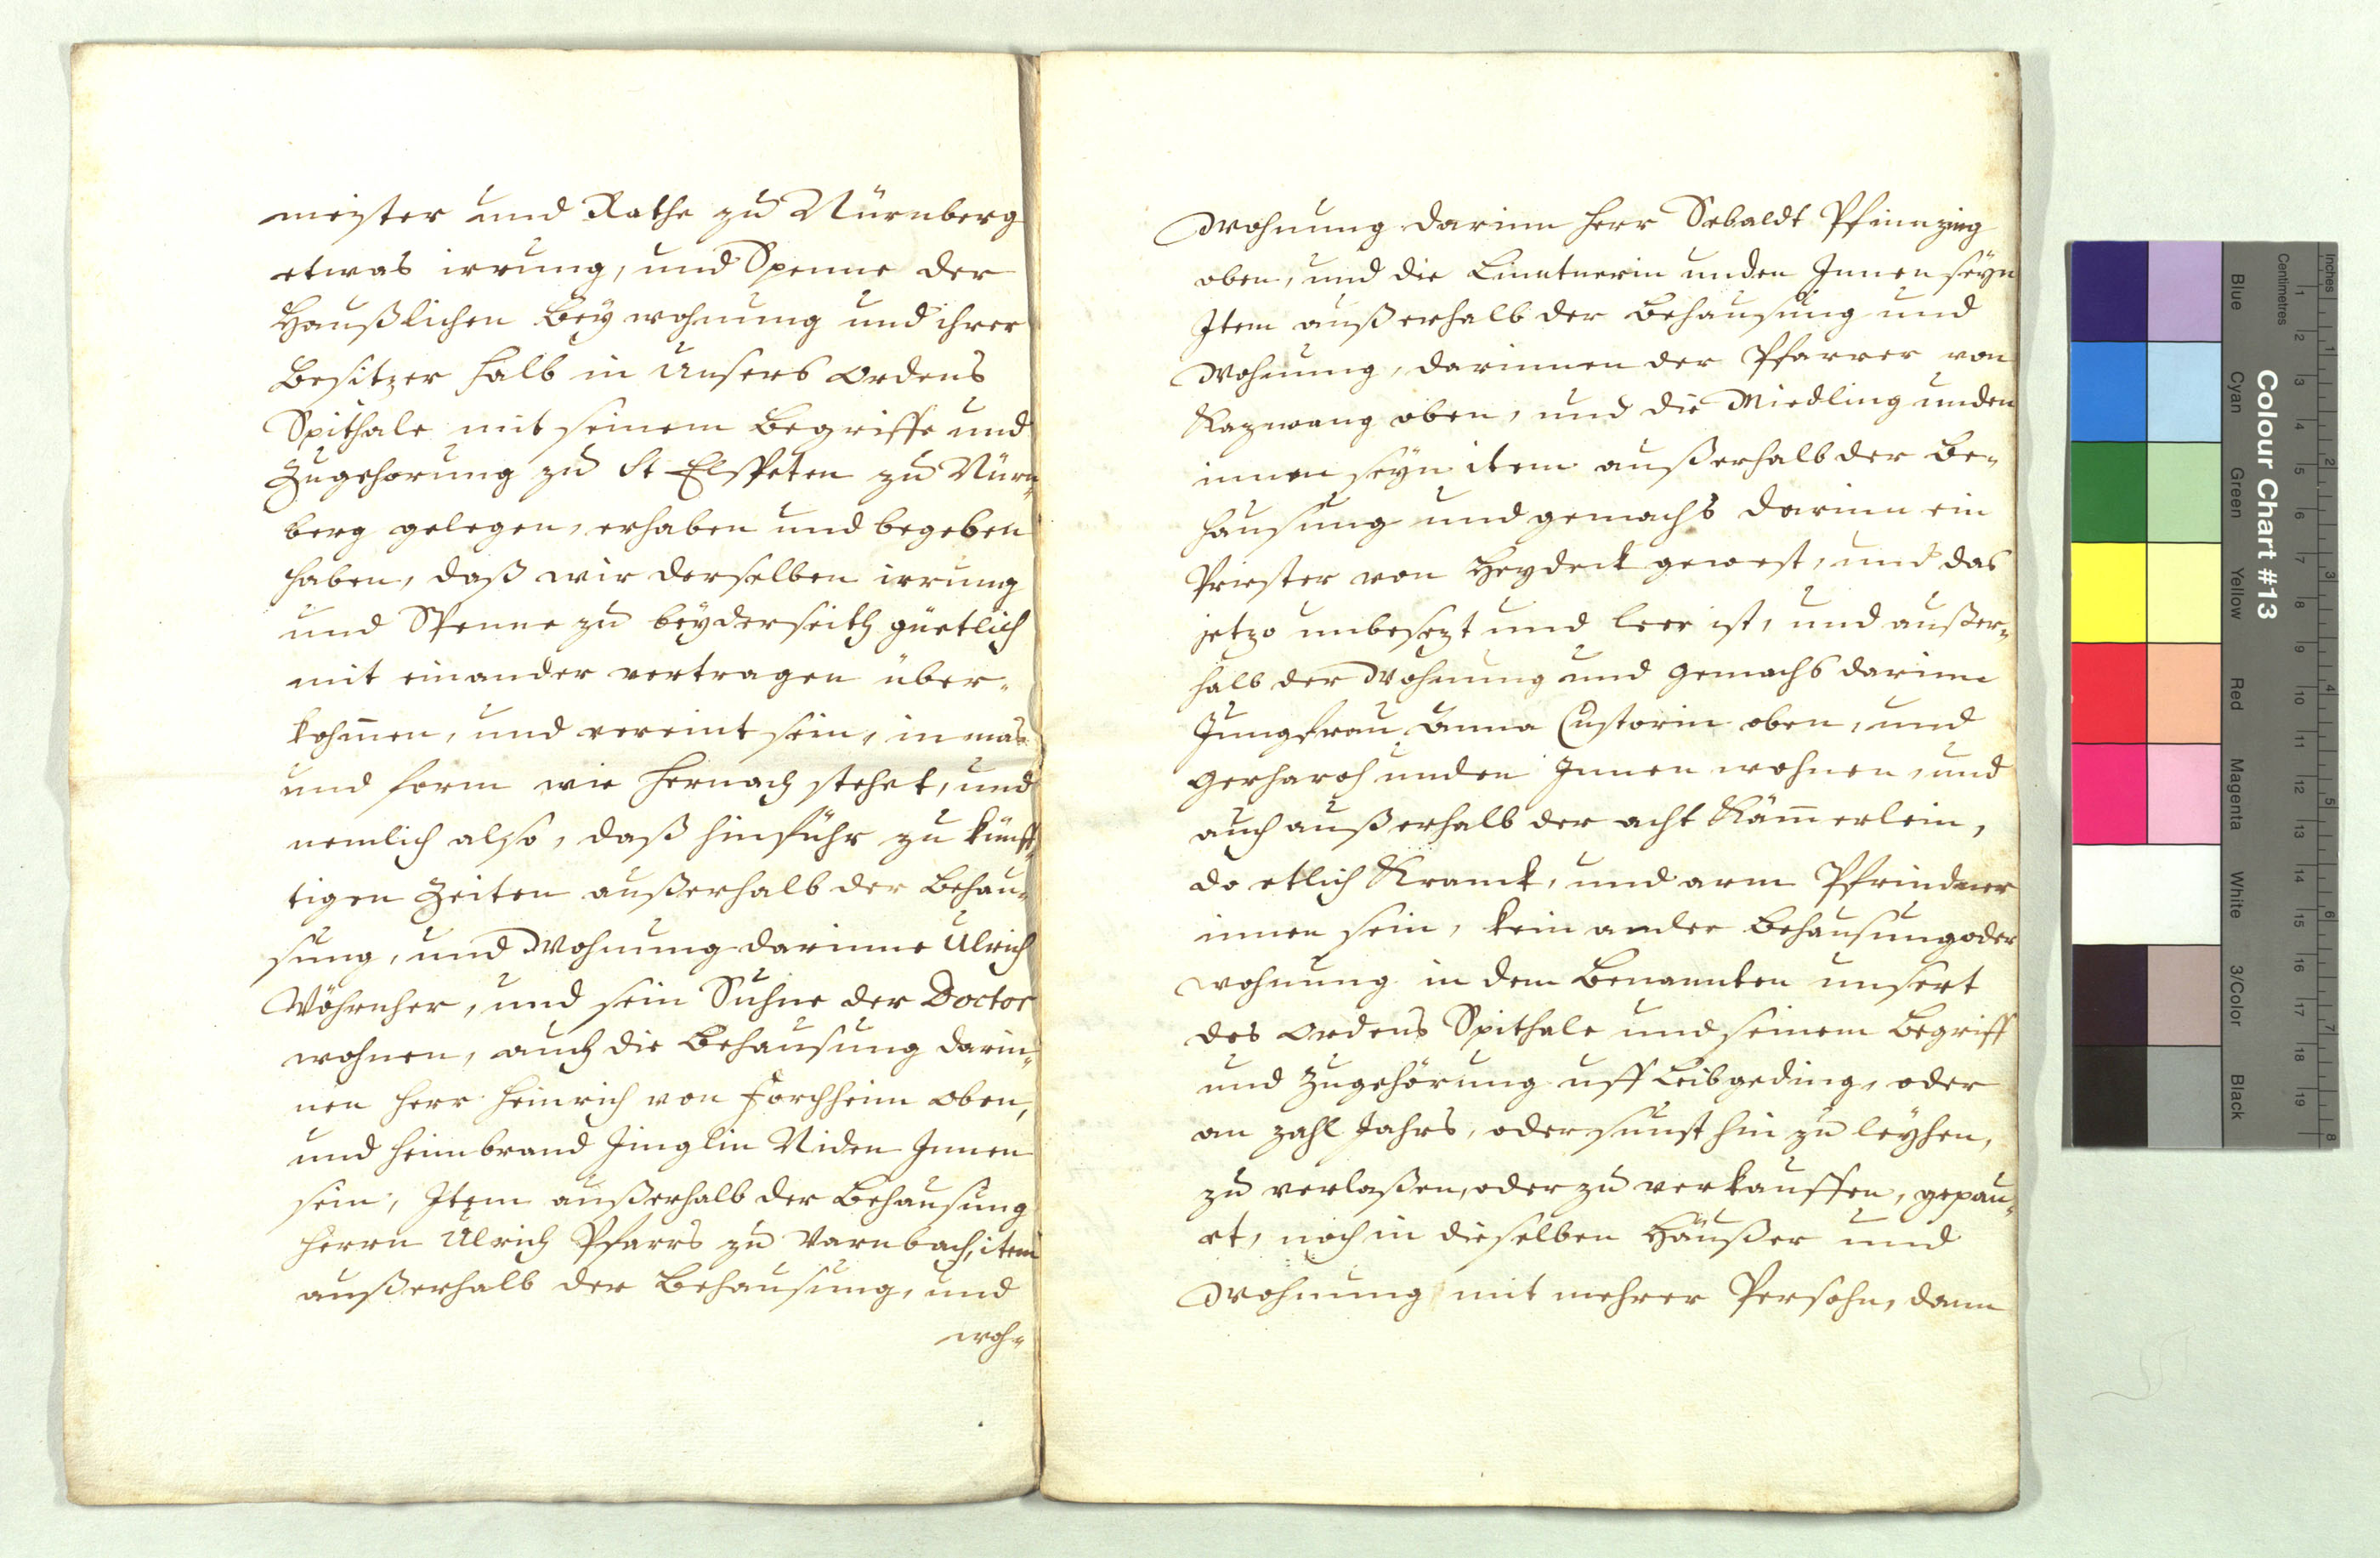 meister und Rathe zu Nürnberg
etwas irrung, und Spenne der
Haußlichen Beywohnung und ihrer
Besitzer halb in Unsers Ordens
Spithale mit seinem Begriffe und
Zugehorung zu St Elspeten zu Nürn-
berg gelegen, erhaben und begeben
haben, daß wir derselben irrung
und Spenne zu beyderseith güetlich
mit einander vertragen über-
kohm̄en, und vereint sein, in mas
und form wie hernach stehet, und
nemlich also, daß hinführ zu künff-
tigen Zeiten außerhalb der Behau-
sung, und Wohnung darinne Ulrich
und sein Suhne der Doctor
wohnen, auch die Behausung darin-
nen Herr Heinrich von Forchheim oben,
und Heimbrand Jinglin Niden Innen
sein, Item außerhalb der Behausung
Herrn Ulrich Pfarrs zu Varnbach, item
außerhalb der Behausung, und
woh-
Wohnung darinn Herr Sebaldt Pfinnzing
oben, und die unden Innen seyn
Item außerhalb der Behausung und
Wohnung, darinnen der Pfarrer von
Kazwang oben, und die Miedling unden
innen seyn item außerhalb der Be-
hausung und gemachs darinn ein
Priester von Heydeck gewest, und das
jetzo unbesezt und leer ist, und außer-
halb der Wohnung und Gemachs darinn
Jungfrau Anna Custorin oben, und
unden Innen wohnen, und
auch außerhalb der acht Käm̄erlein,
do etlich Kranck, und arm Pfrindner
innen sein, kein ander Behausung oder
wohnung in dem Benannten unsert
des Ordens Spithale und seinem Begriff
und Zugehörung uff Leibgeding, oder
an zahl Jahrs, oder sunst hin zu leyhen,
zu verlaßen, oder zu verkauffen, gepau-
et, noch in dieselben Häußer und
Wohnung mit mehrer Persohn, dann
Colour Chart #13
Blue
Cyan
Green
Yellow
Red
Magenta
White
3/Color
Black
Inches
1 2 3 4 5 6 7 8
Centimetres
1 2 3 4 5 6 7 8 9 10 11 12 13 14 15 16 17 18 19